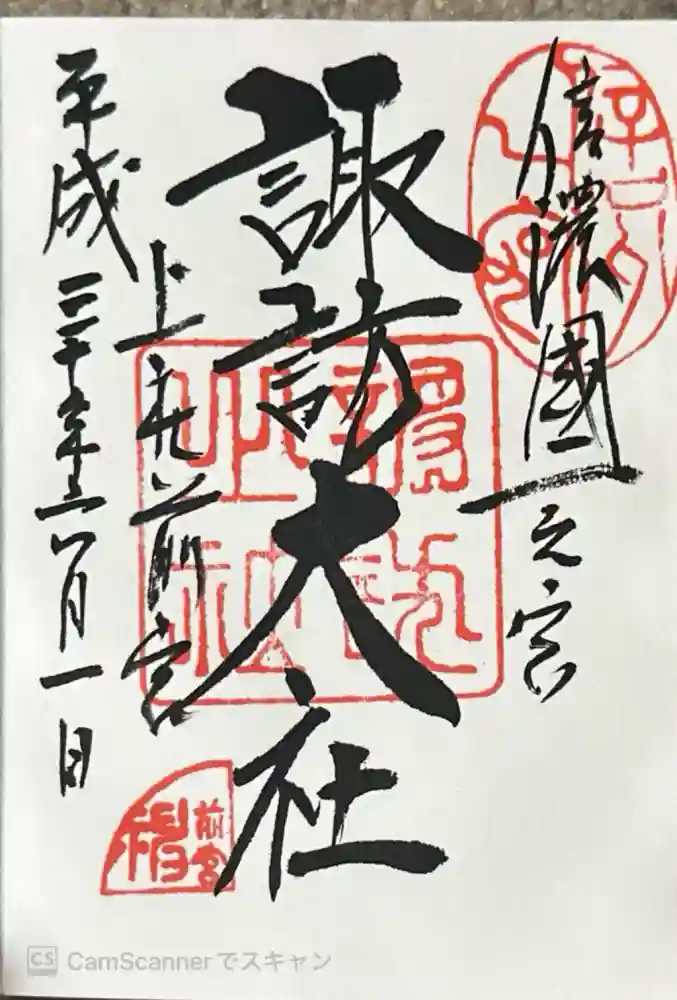 信濃國一之宮
諏訪大社
上社前宮
平成二十六年六月一日
前宮
CS CamScannerでスキャン